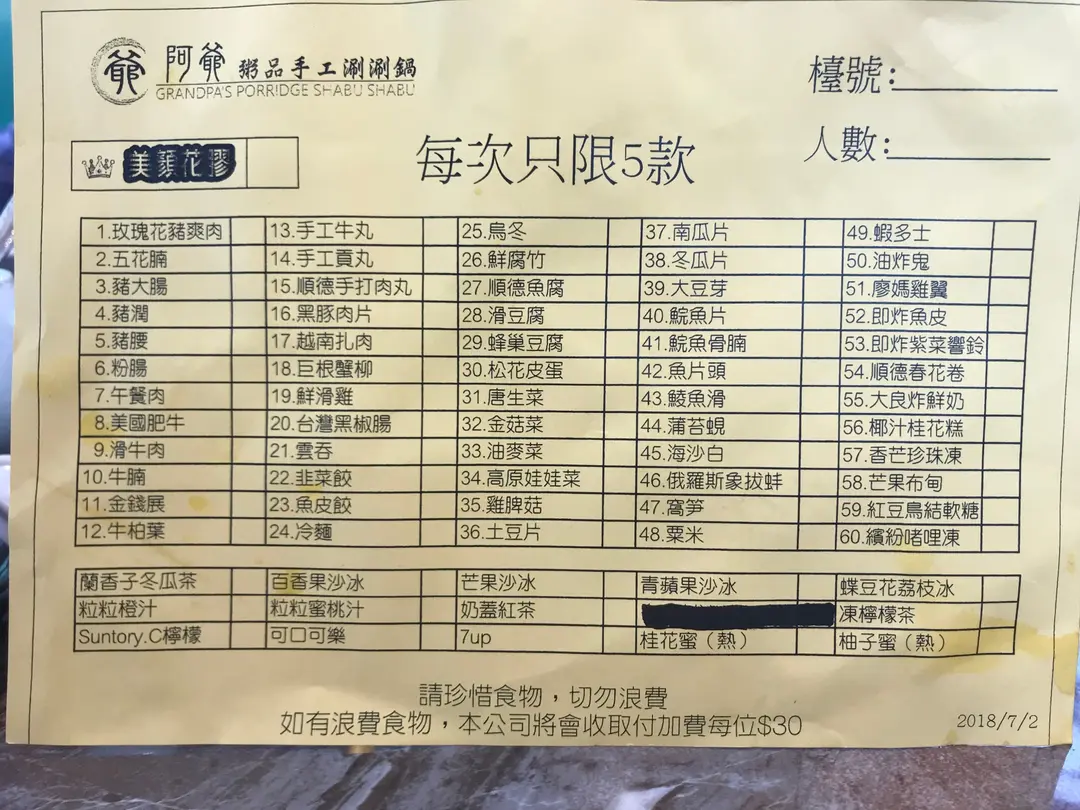 爺 阿爺 粥品手工涮涮鍋
GRANDPA'S PORRIDGE SHABU SHABU
檯號:
人數:
美顏花膠
每次只限5款
1.玫瑰花豬爽肉 13.手工牛丸 25.烏冬 37.南瓜片 49.蝦多士
2.五花腩 14.手工貢丸 26.鮮腐竹 38.冬瓜片 50.油炸鬼
3.豬大腸 15.順德手打肉丸 27.順德魚腐 39.大豆芽 51.廖媽雞翼
4.豬潤 16.黑豚肉片 28.滑豆腐 40.鯇魚片 52.即炸魚皮
5.豬腰 17.越南扎肉 29.蜂巢豆腐 41.鯇魚骨腩 53.即炸紫菜響鈴
6.粉腸 18.巨根蟹柳 30.松花皮蛋 42.魚片頭 54.順德春花卷
7.午餐肉 19.鮮滑雞 31.唐生菜 43.鯪魚滑 55.大良炸鮮奶
8.美國肥牛 20.台灣黑椒腸 32.金菇菜 44.蒲苔蜆 56.椰汁桂花糕
9.滑牛肉 21.雲吞 33.油麥菜 45.海沙白 57.香芒珍珠凍
10.牛腩 22.韭菜餃 34.高原娃娃菜 46.俄羅斯象拔蚌 58.芒果布甸
11.金錢展 23.魚皮餃 35.雞脾菇 47.窩笋 59.紅豆鳥結軟糖
12.牛柏葉 24.冷麵 36.土豆片 48.粟米 60.繽紛啫哩凍
蘭香子冬瓜茶 百香果沙冰 芒果沙冰 青蘋果沙冰 蝶豆花荔枝冰
粒粒橙汁 粒粒蜜桃汁 奶蓋紅茶 凍檸檬茶
Suntory.C檸檬 可口可樂 7up 桂花蜜（熱） 柚子蜜（熱）
請珍惜食物，切勿浪費
如有浪費食物，本公司將會收取付加費每位$30
2018/7/2